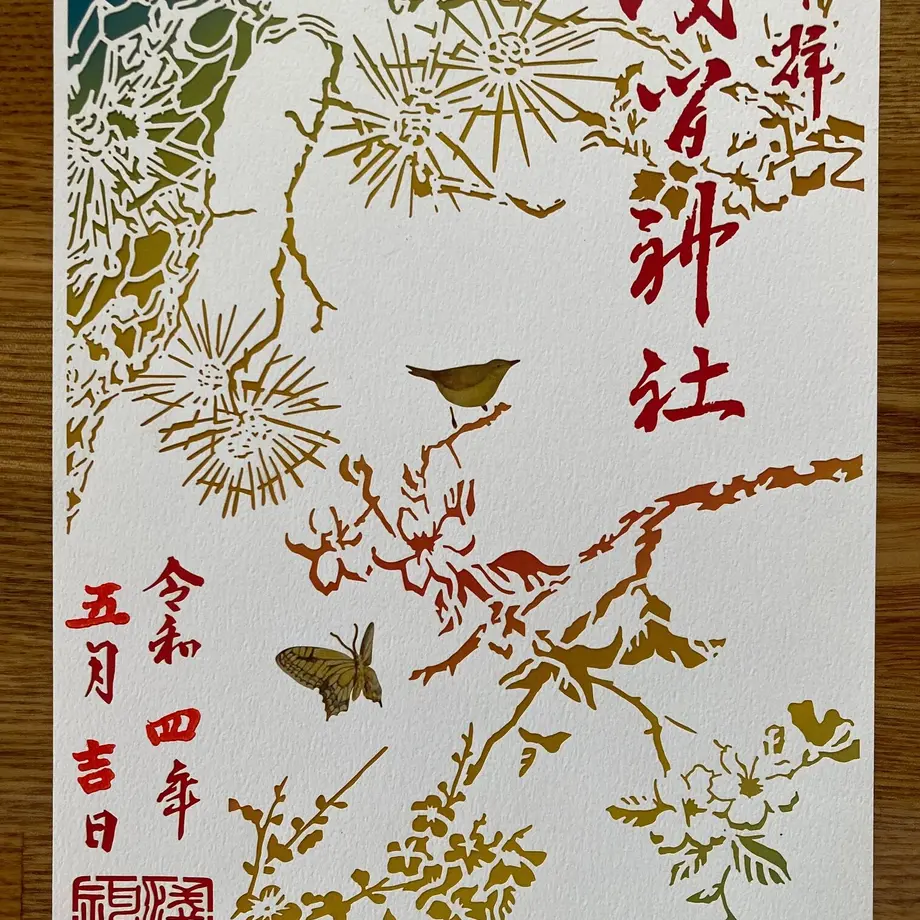 拝
神社
令和四年
五月吉日